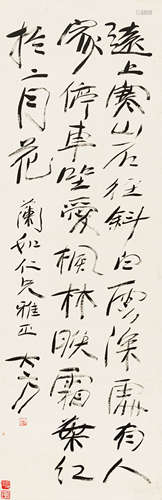 遠上寒山石徑斜白雲深處有人
家停車坐愛楓林晚霜葉紅
於二月花
蘭如仁兄雅正